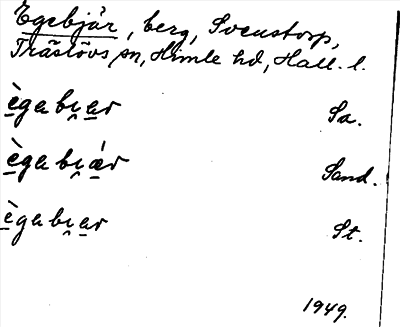 Egebjär, berg, Svenstorp,
Träslövs sn, Himle hd, Hall. l.
ègabı̯ar Sa.
ègabı̯ár Sand.
ègabı̯ar St.
1949.